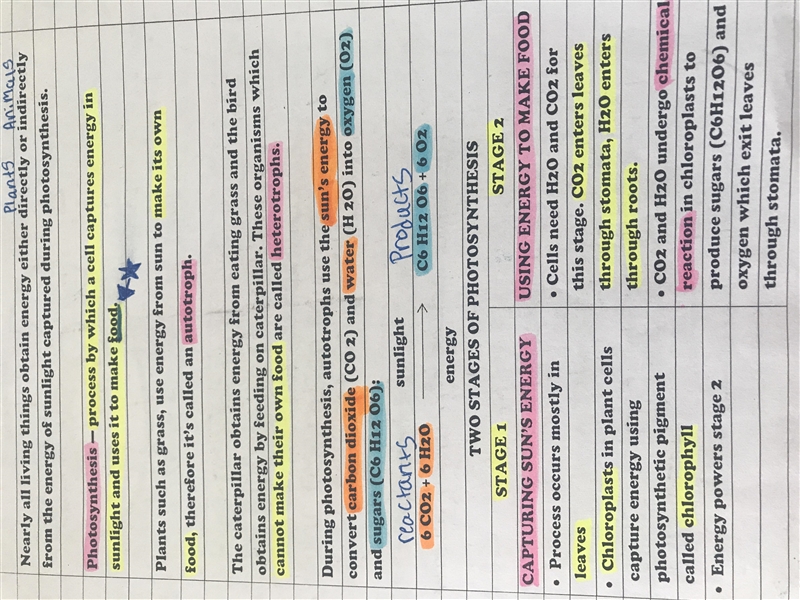 Plants Animals
Nearly all living things obtain energy either directly or indirectly
from the energy of sunlight captured during photosynthesis.
Photosynthesis — process by which a cell captures energy in
sunlight and uses it to make food.
Plants such as grass, use energy from sun to make its own
food, therefore it's called an autotroph.
The caterpillar obtains energy from eating grass and the bird
obtains energy by feeding on caterpillar. These organisms which
cannot make their own food are called heterotrophs.
During photosynthesis, autotrophs use the sun's energy to
convert carbon dioxide (CO 2) and water (H 2O) into oxygen (O2)
and sugars (C6 H12 O6):
reactants sunlight Products
6 CO2 + 6 H2O → C6 H12 O6 + 6 O2
energy
TWO STAGES OF PHOTOSYNTHESIS
STAGE 1
CAPTURING SUN'S ENERGY
• Process occurs mostly in
leaves
• Chloroplasts in plant cells
capture energy using
photosynthetic pigment
called chlorophyll
• Energy powers stage 2
STAGE 2
USING ENERGY TO MAKE FOOD
• Cells need H2O and CO2 for
this stage. CO2 enters leaves
through stomata, H2O enters
through roots.
• CO2 and H2O undergo chemical
reaction in chloroplasts to
produce sugars (C6H12O6) and
oxygen which exit leaves
through stomata.